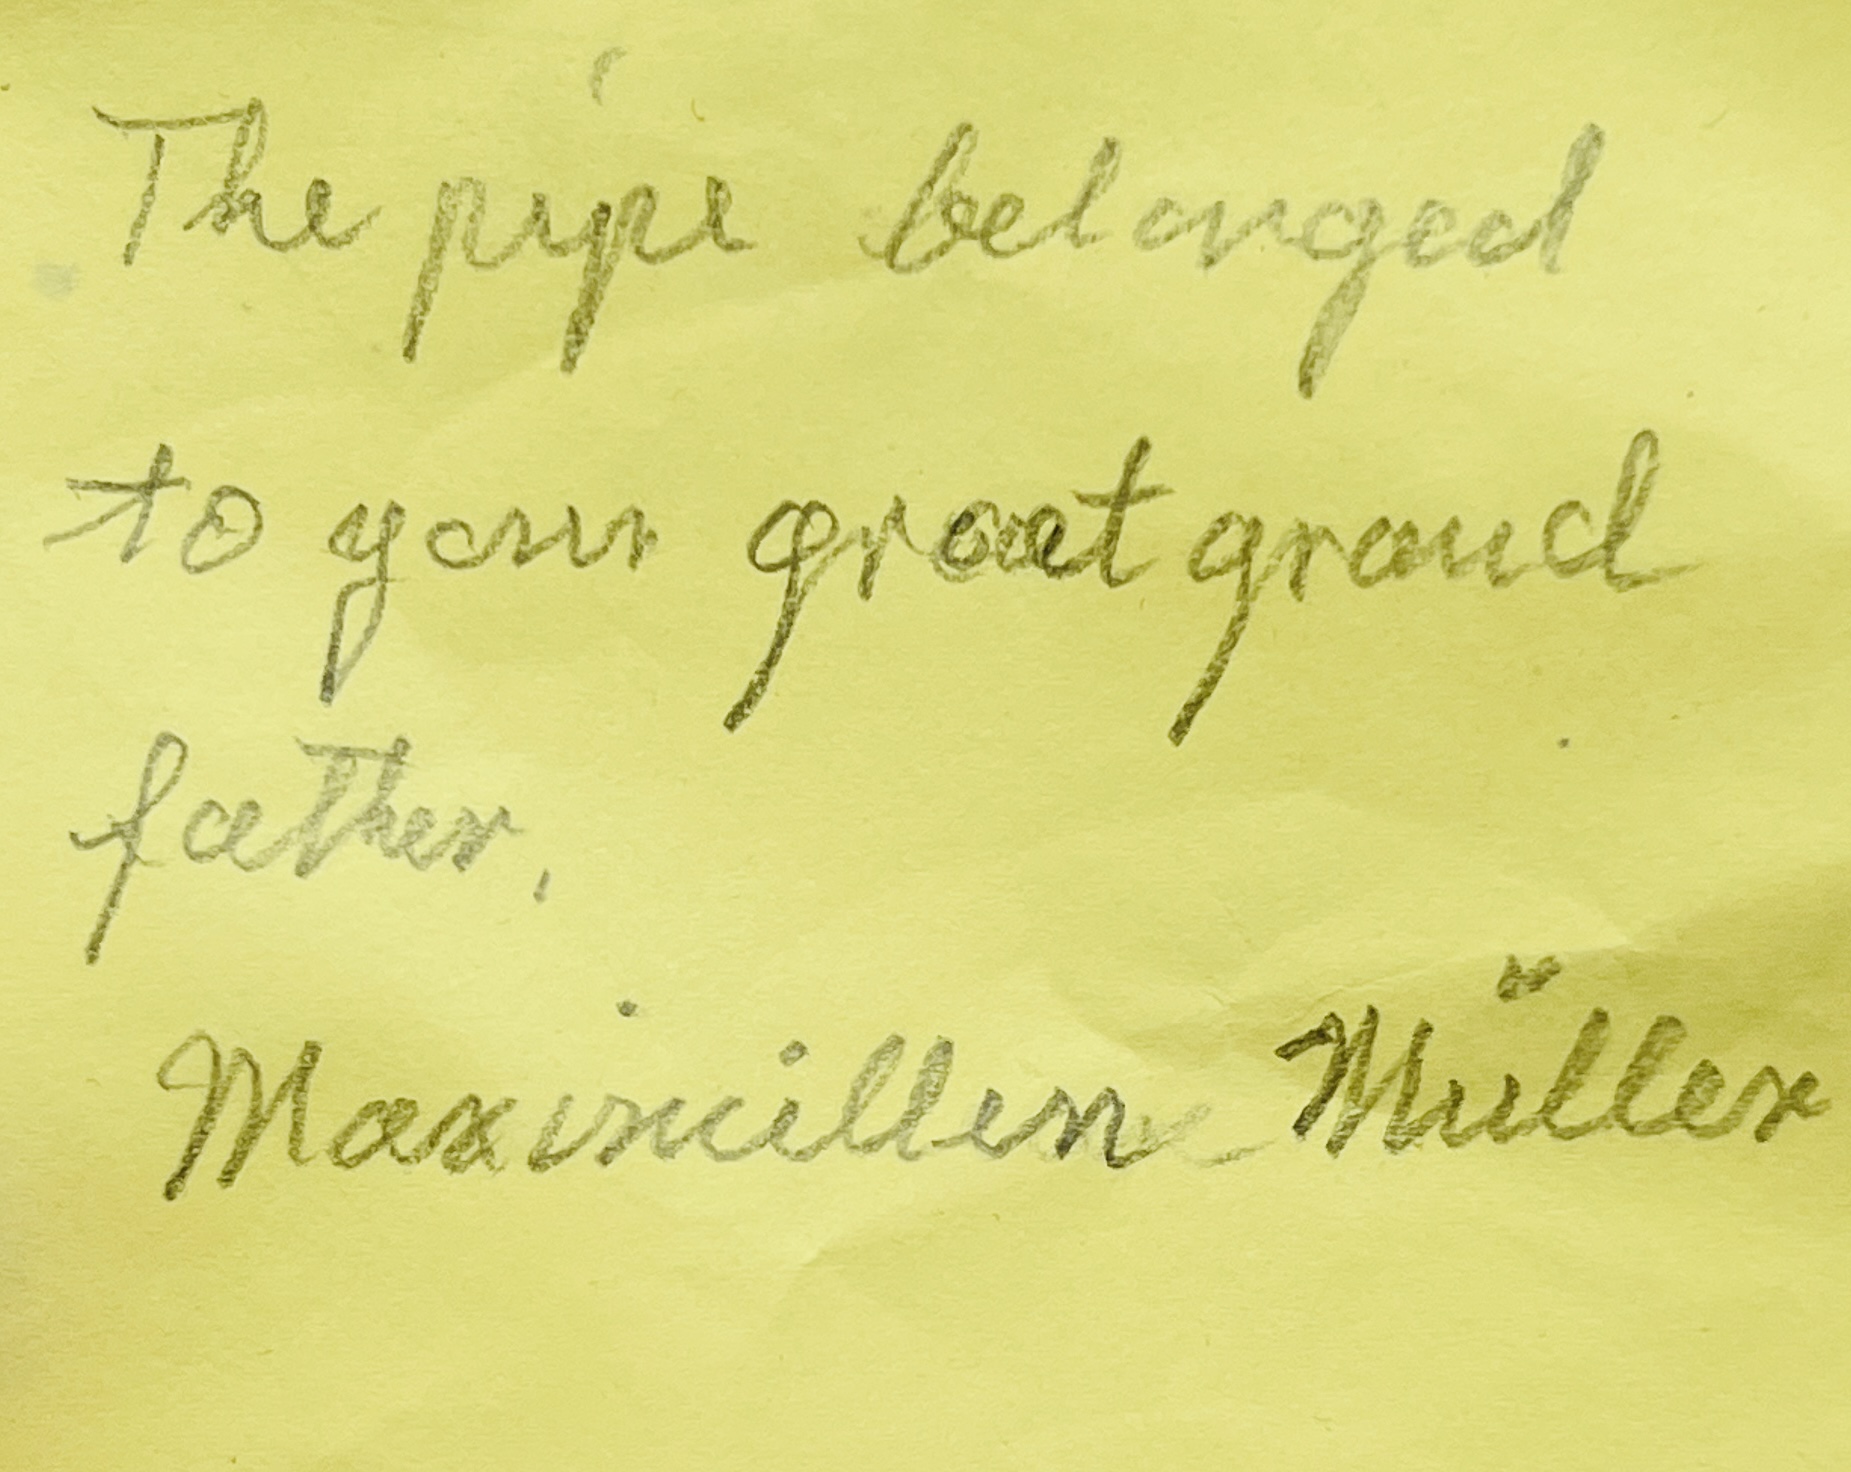 The pipe belonged
to your great grand
father,
Maximillien Müller